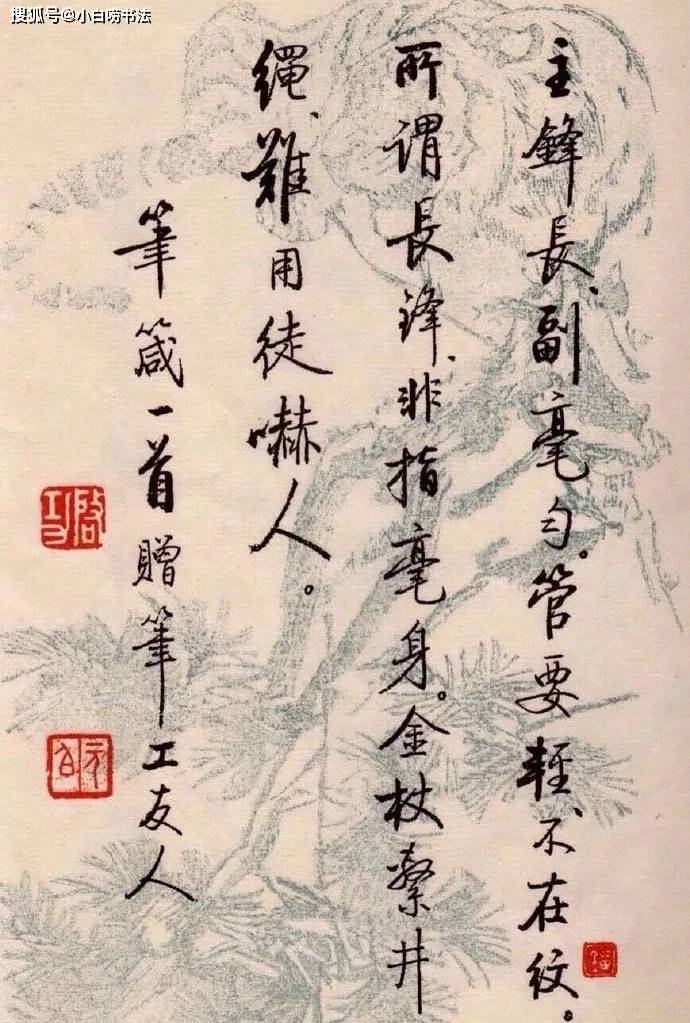 搜狐号@小白唠书法
主鋒長、副毫勻。管要輕、不在紋。
所謂長鋒、非指毫身。金杖繫井
繩、難用徒嚇人。
筆箴一首贈筆工友人
啟功
元白